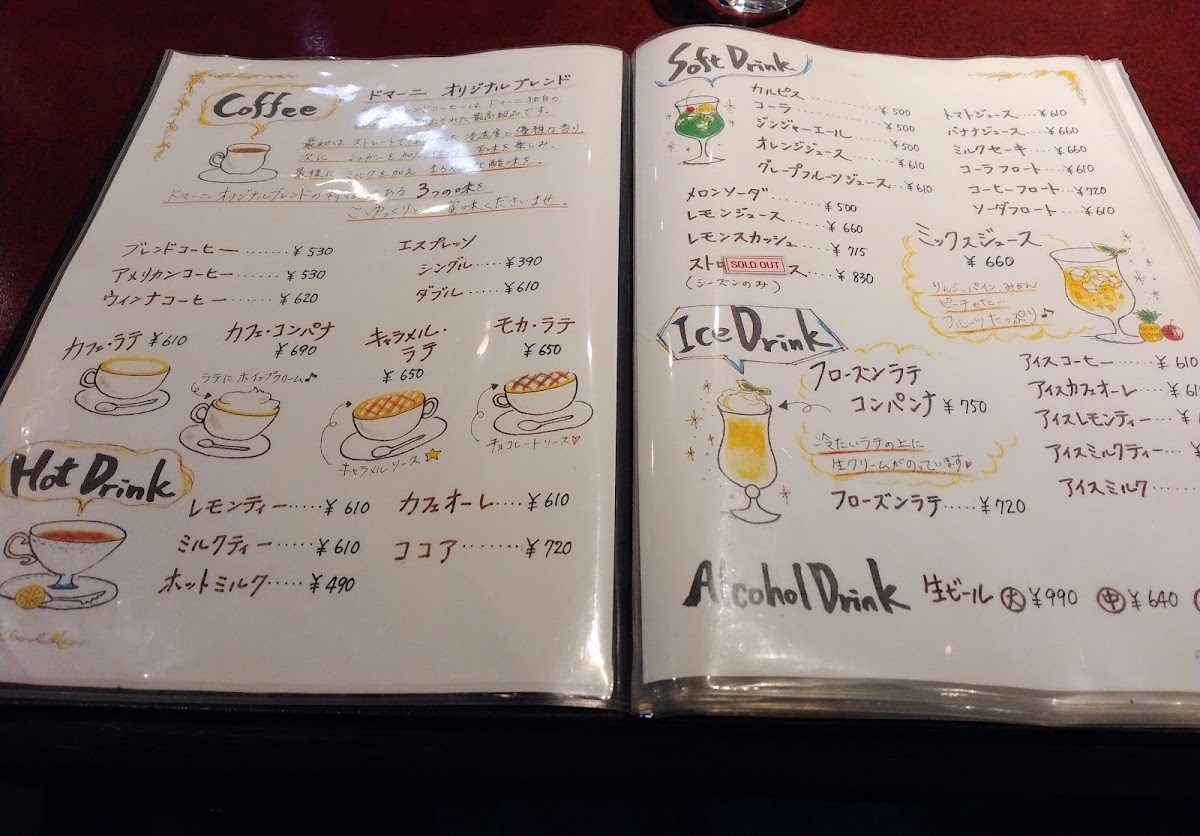 Coffee
ドマーニ オリジナルブレンド
ブレンドコーヒーは ドマーニ独自の
された最高級品です。
最初は ストレートで 濃度と 優雅な香り。
次に シュガーを加え 甘味を楽しみ、
最後に ミルクを加え まろやかな酸味を。
ドマーニ オリジナルブレンドの ある 3つの味を
ごゆっくりと ご賞味くださいませ。
ブレンドコーヒー ······ ¥530
アメリカンコーヒー ······ ¥530
ウィンナコーヒー ······ ¥620
エスプレッソ
シングル ····· ¥390
ダブル ····· ¥610
カフェ・ラテ ¥610
カフェ・コンパナ
¥690
キャラメル・
ラテ
¥650
モカ・ラテ
¥650
ラテに ホイップクリーム♪
キャラメルソース☆
チョコレートソース♡
Hot Drink
レモンティー ····· ¥610
ミルクティー ····· ¥610
ホットミルク ····· ¥490
カフェオーレ ···· ¥610
ココア ········ ¥720
Soft Drink
カルピス ······ ¥500
コーラ ······ ¥500
ジンジャーエール ······ ¥500
オレンジジュース ······ ¥610
グレープフルーツジュース ···· ¥610
メロンソーダ ······ ¥500
レモンジュース ······ ¥660
レモンスカッシュ ······ ¥715
スト SOLD OUT ス ···· ¥830
(シーズンのみ)
トマトジュース ···· ¥610
バナナジュース ···· ¥660
ミルクセーキ ···· ¥660
コーラフロート ···· ¥610
コーヒーフロート ···· ¥720
ソーダフロート ···· ¥610
ミックスジュース
¥660
りんご、パイン、みかん
ピーチetc...
フルーツたっぷり♪
Ice Drink
フローズンラテ
コンパンナ ¥750
冷たいラテの上に
生クリームがのっています♥
フローズンラテ ····· ¥720
アイスコーヒー ······ ¥610
アイスカフェオーレ ··· ¥61
アイスレモンティー ··· ¥
アイスミルクティー ··· ¥
アイスミルク ·····
Alcohol Drink
生ビール 大 ¥990 中 ¥640